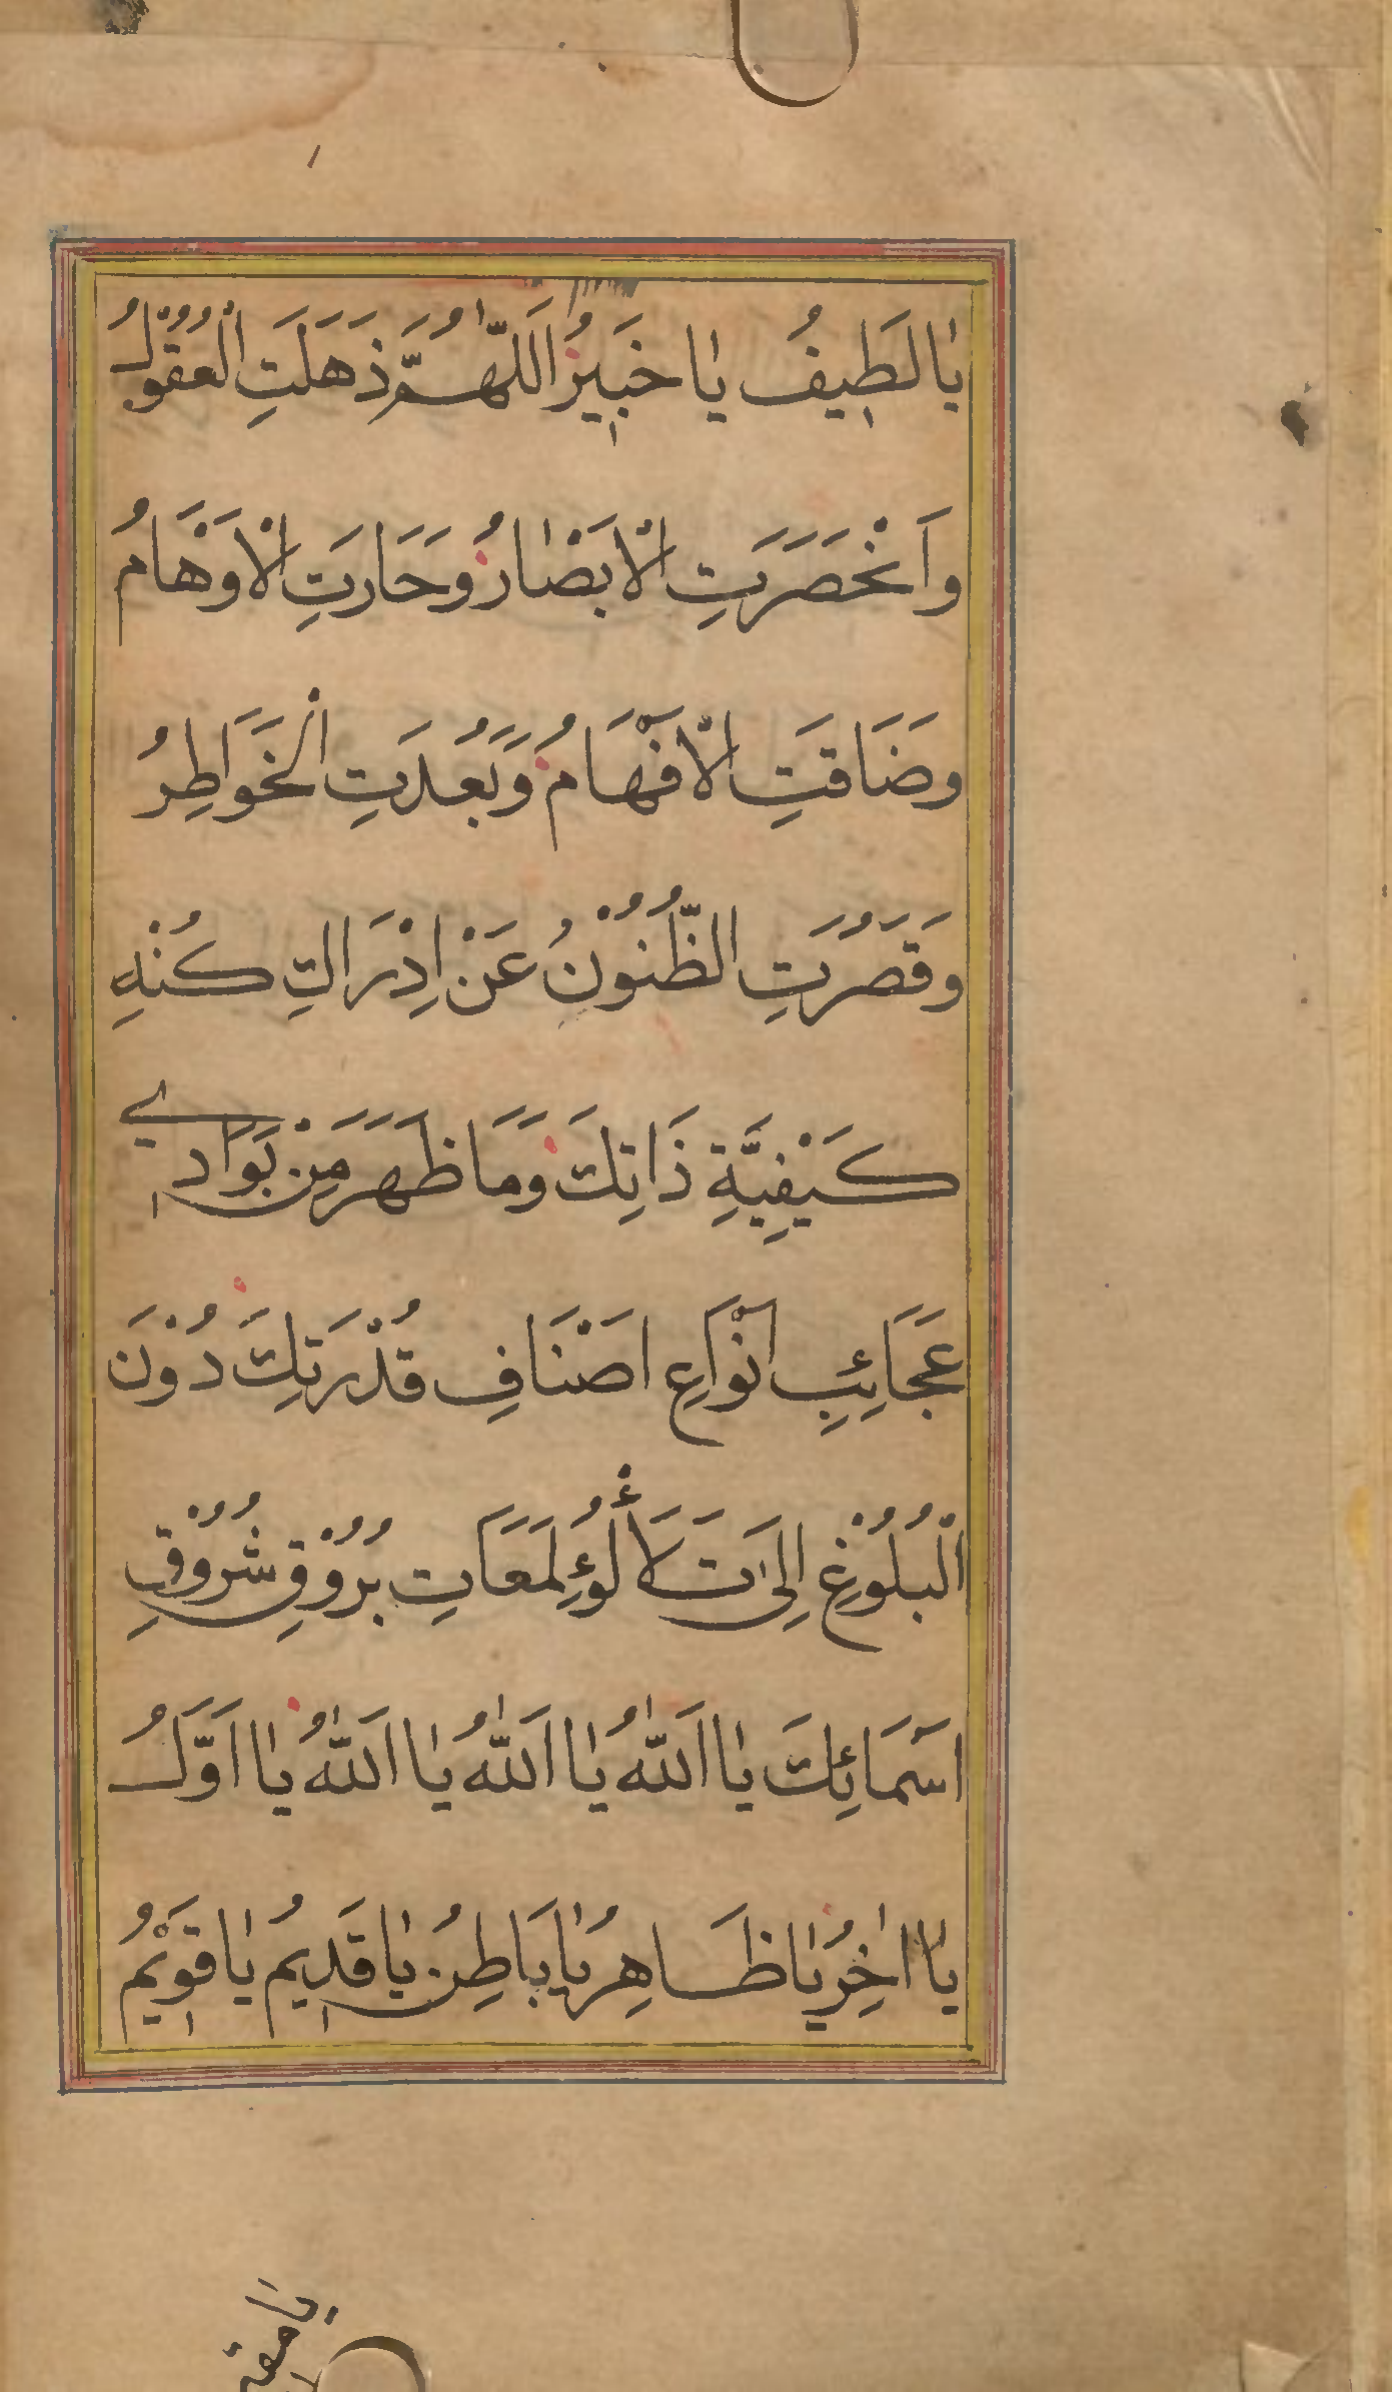 يَا لَطِيفُ يَا خَبِيرُ اَللّٰهُمَّ ذَهَلَتِ الْعُقُوْلُ
وَاَنْحَصَرَتِ الْاَبْصَارُ وَحَارَتِ الْاَوْهَامُ
وَضَاقَتِ الْاَفْهَامُ وَبَعُدَتِ الْخَوَاطِرُ
وَقَصُرَتِ الظُّنُوْنُ عَنْ اِدْرَاكِ كُنْهِ
كَيْفِيَّةِ ذَاتِكَ وَمَا ظَهَرَ مِنْ بَوَادِي
عَجَائِبِ اَنْوَاعِ اَصْنَافِ قُدْرَتِكَ دُوْنَ
الْبُلُوْغِ اِلٰى تَلَأْلُؤِ لَمَعَاتِ بُرُوْقِ شُرُوْقِ
اَسْمَائِكَ يَا اَللّٰهُ يَا اَللّٰهُ يَا اَللّٰهُ يَا اَوَّلُ
يَا اٰخِرُ يَا ظَاهِرُ يَا بَاطِنُ يَا قَدِيمُ يَا قَوِيْمُ